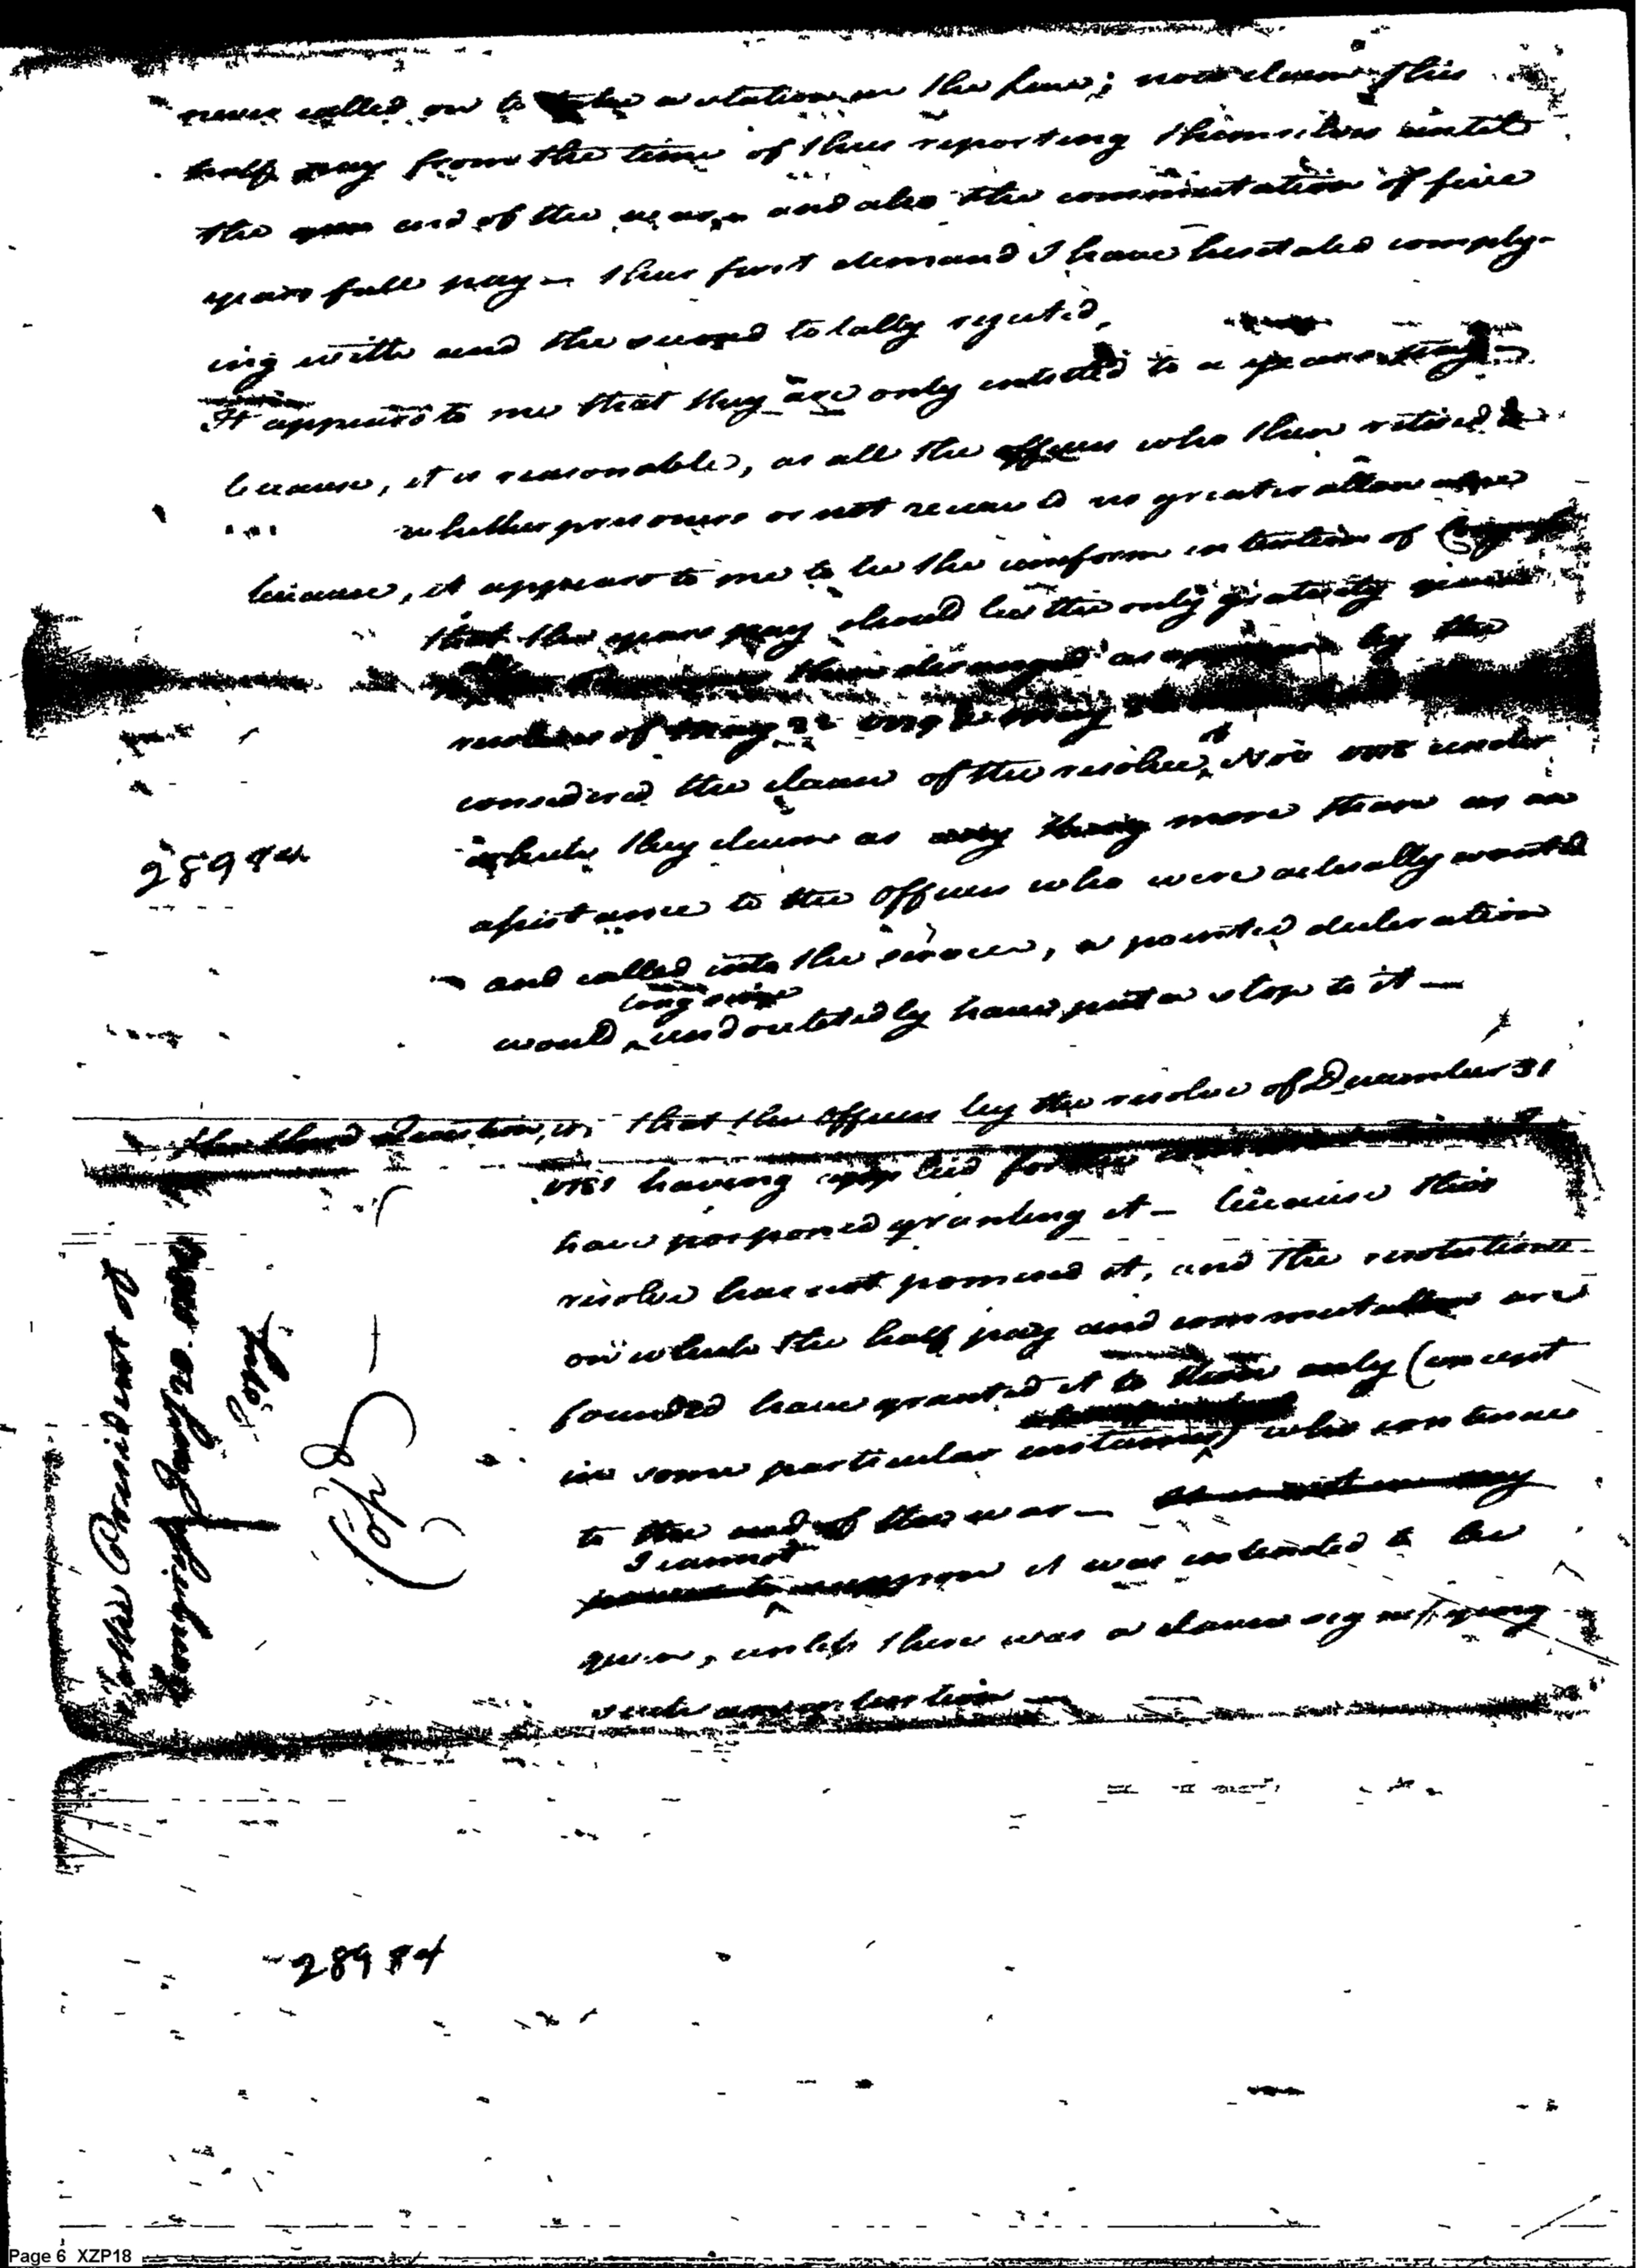 never called on to take a station in the line; now claim this
half pay from the time of thus reporting themselves until
the end of the war and also the commutation of five
years full pay — their first demand I have hesitated comply-
ing with and the second totally rejected,
It appears to me that they are only entitled to a years pay
because, it is reasonable, as all the officers who then retired
whether prisoners or not received no greater allowance
because, it appears to me to be the uniform intention of
that the years pay should be the only gratuity given
then deranged as by the
resolves of May 22 May
considered the clause of the resolve, under
which they claim as any thing more than as an
assistance to the officers who were actually wanted
and called into the service, a pointed declaration
long since
would undoubtedly have put a stop to it —
28984
the third question, is, that the officers by the resolve of December 31
1781 having applied for the
have posponed granting it — because this
resolve has not promised it, and the resolutions
on which the half pay and commutation are
founded have granted it to those only (except
in some particular instances) who continue
to the end of the war — It is not in any
I cannot
suppose it was intended to be
given, unless there was a clause signifying
such an
To the President of
Congress Jany 20
28984
Page 6 XZP18